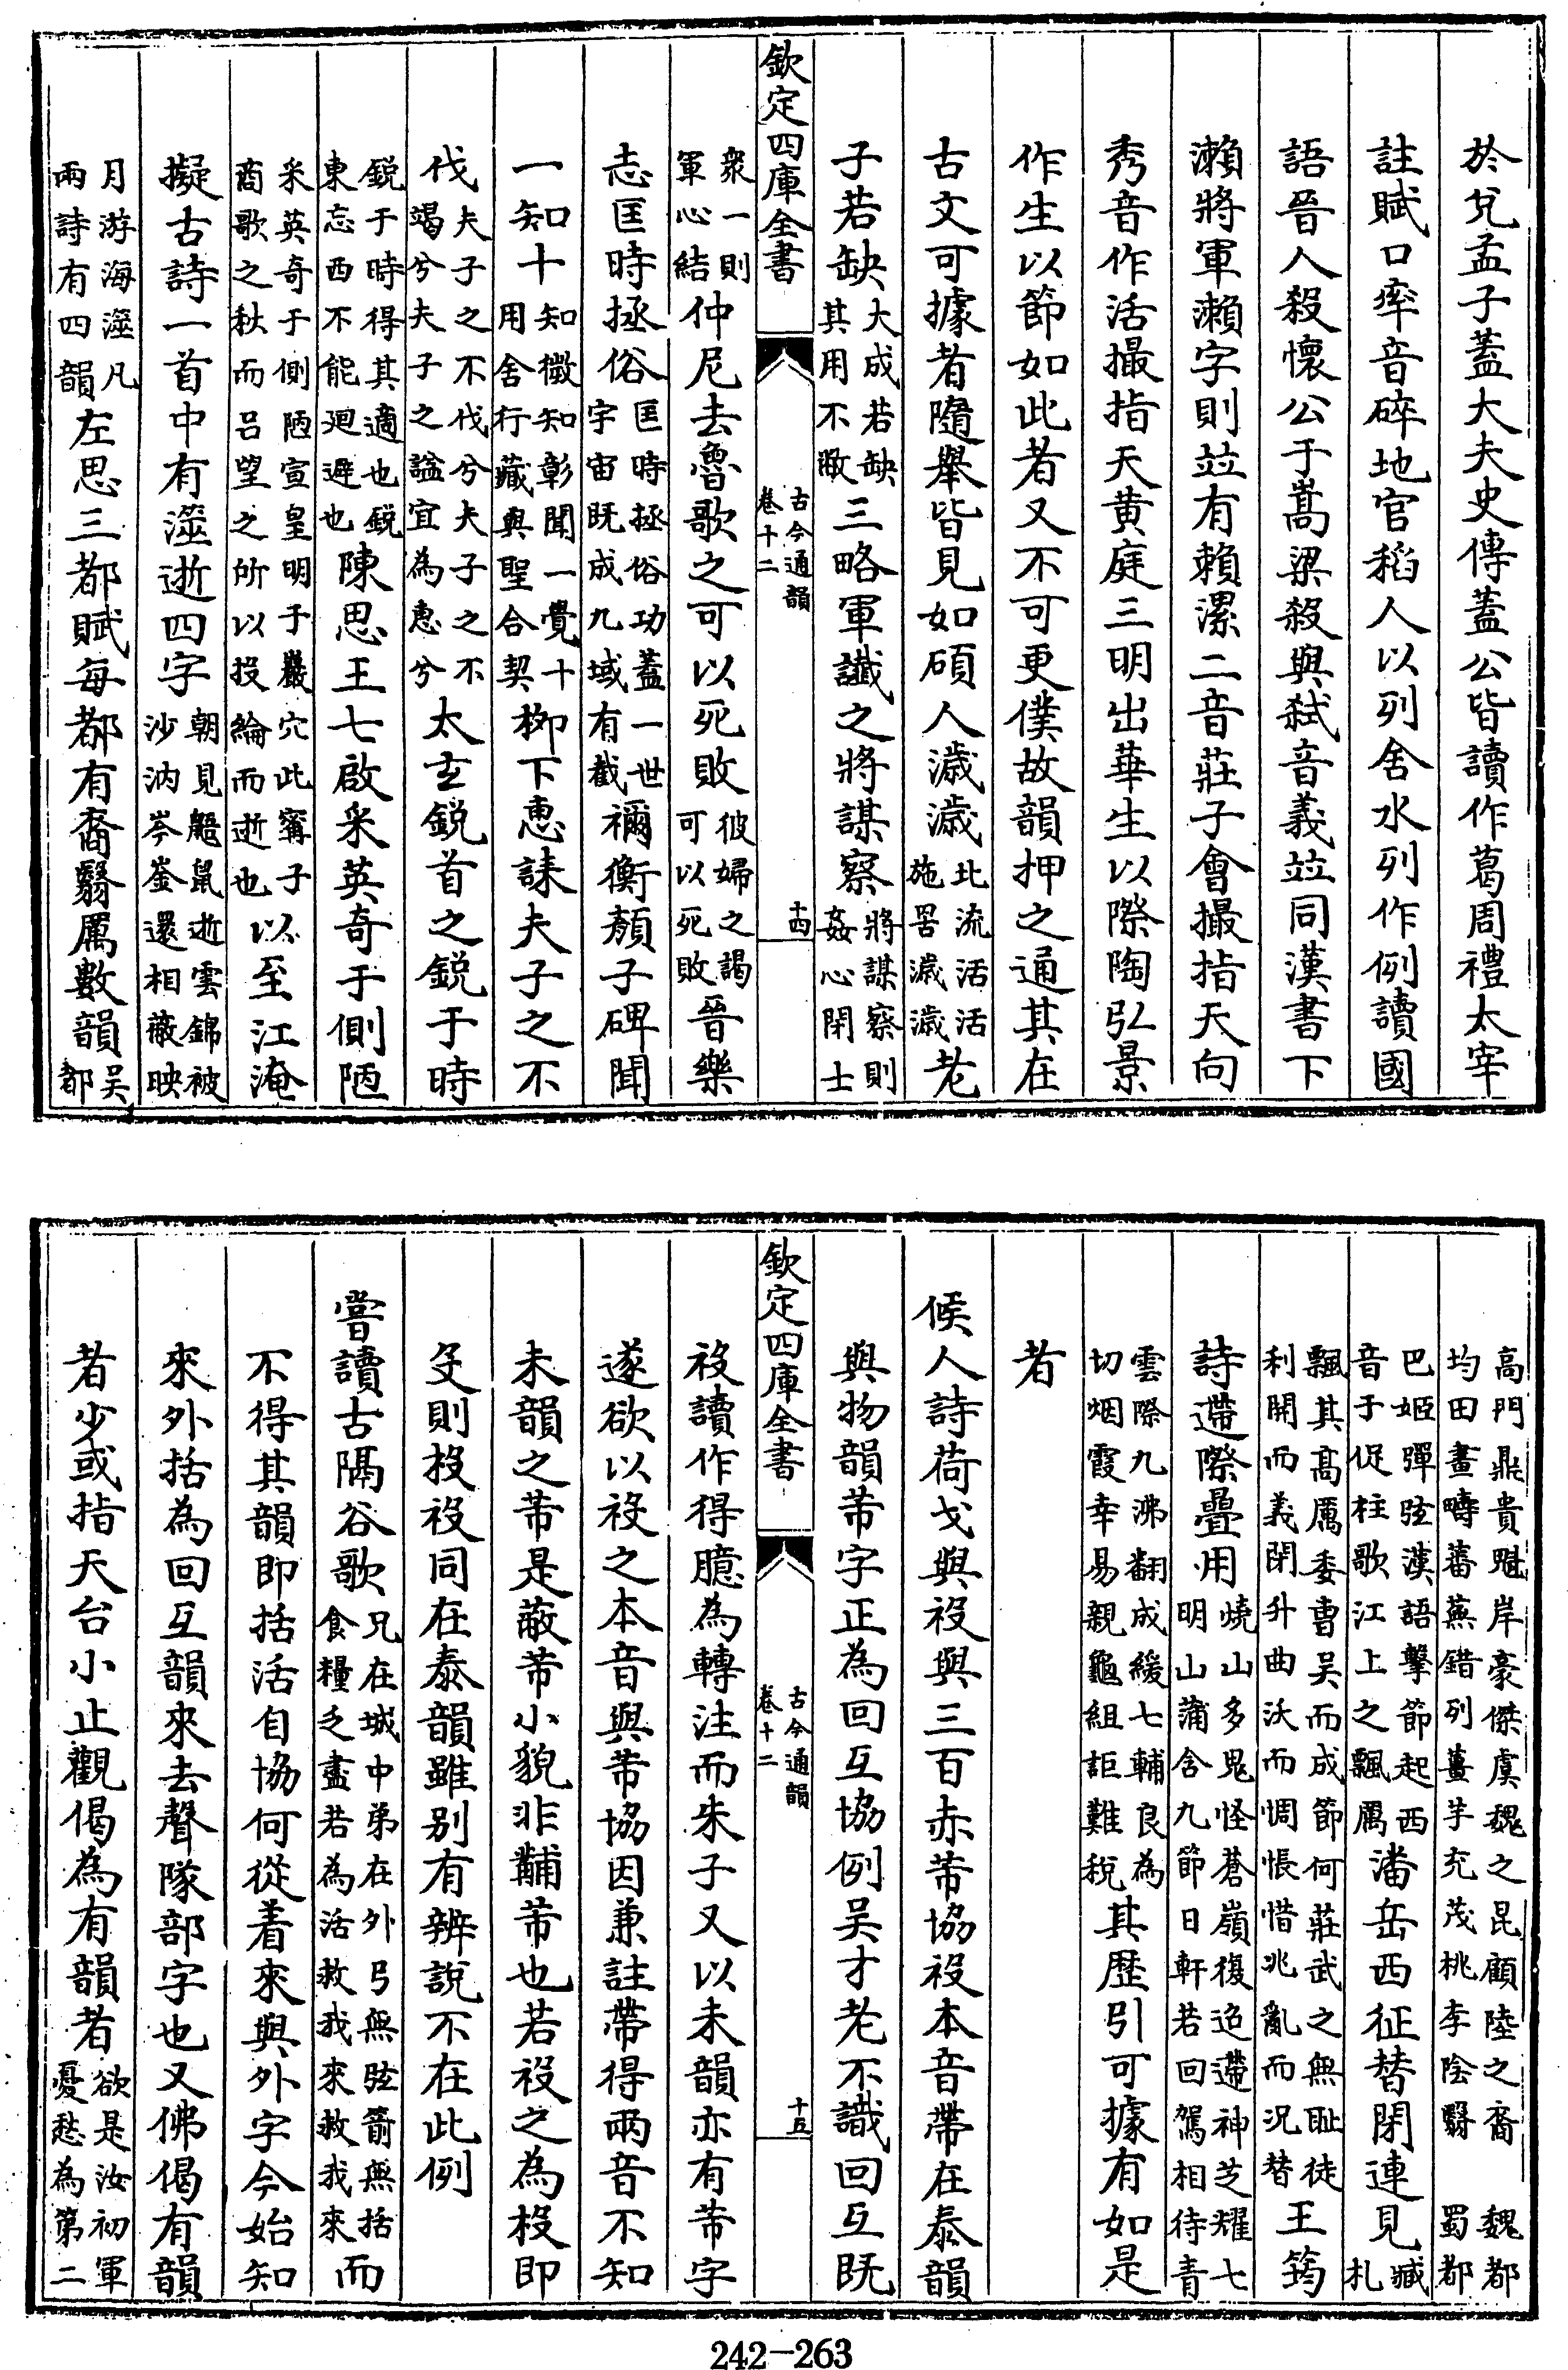 於兌孟子蓋大夫史傳蓋公皆讀作葛周禮太宰
註賦口率音碎地官稻人以列舍水列作例讀國
語晉人殺懷公于髙梁殺與弒音義竝同漢書下
瀨將軍瀨字則竝有賴漯二音莊子會撮指天向
秀音作活撮指天黄庭三明出華生以際陶弘景
作生以節如此者又不可更僕故韻押之通其在
古文可據者隨舉皆見如碩人濊濊北流活活施罟濊濊老
子若缺大成若缺其用不敝三略軍讖之將謀察將謀察則姦心閉士
欽定四庫全書 古今通韻 卷十二 十四
衆一則軍心結仲尼去魯歌之可以死敗彼婦之謁可以死敗晉樂
志匡時拯俗匡時拯俗功蓋一世宇宙既成九域有截禰衡顔子碑聞
一知十知微知彰聞一覺十用舍行藏與聖合契柳下惠誄夫子之不
伐夫子之不伐兮夫子之不竭兮夫子之諡宜為惠兮太玄鋭首之鋭于時
鋭于時得其適也鋭東忘西不能廻避也陳思王七啟采英奇于側陋
采英奇于側陋宣皇明于巖穴此甯子商歌之秋而吕望之所以投綸而逝也以至江淹
擬古詩一首中有澨逝四字朝見鼯鼠逝雲錦被沙汭岑崟還相蔽映
月游海澨凡兩詩有四韻左思三都賦每都有裔翳厲數韻吳都
髙門鼎貴魁岸豪傑虞魏之昆顧陸之裔 魏都均田畫疇蕃蕪錯列薑芋充茂桃李陰翳 蜀都
巴姬彈弦漢語擊節起西音于促柱歌江上之飄厲潘岳西征替閉連見臧札
飄其髙厲委曹吳而成節何莊武之無恥徒利開而義閉升曲沃而惆悵惜兆亂而況替王筠
詩遰際疊用燒山多鬼怪蒼嶺復迢遰神芝耀七明山蒲含九節日軒若回駕相待青
雲際九沸翻成緩七輔良為切烟霞幸易親龜組詎難稅其歴引可據有如是
者
候人詩荷戈與祋與三百赤芾協祋本音帶在泰韻
與物韻芾字正為回互協例吴才老不識回互既
祋讀作得臆為轉注而朱子又以未韻亦有芾字
欽定四庫全書 古今通韻 卷十二 十五
遂欲以祋之本音與芾協因兼註帶得兩音不知
未韻之芾是蔽芾小貌非黼芾也若祋之為杸即
殳則杸祋同在泰韻雖别有辨說不在此例
嘗讀古隔谷歌兄在城中弟在外弓無弦箭無括食糧乏盡若為活救我來救我來而
不得其韻即括活自協何從着來與外字今始知
來外括為回互韻來去聲隊部字也又佛偈有韻
者少或指天台小止觀偈為有韻者欲是汝初軍憂愁為第二
242-263